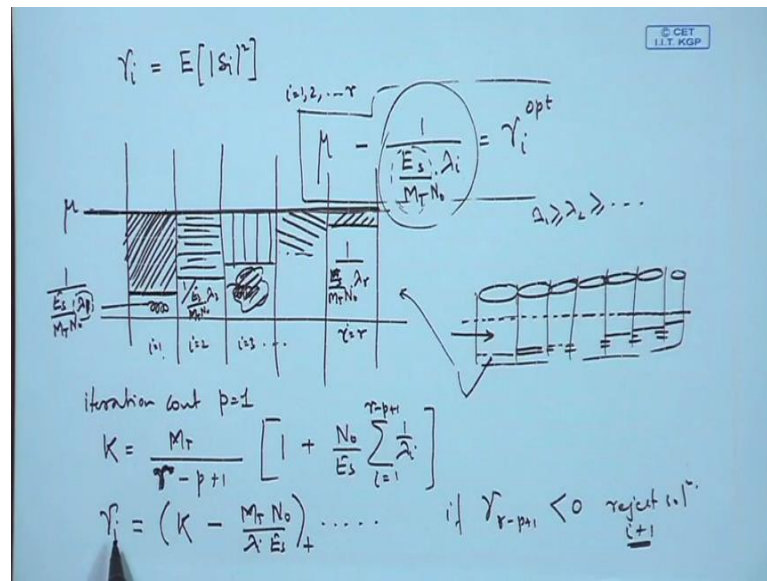 © CET
I.I.T. KGP
γi = E[|Si|²]
i=1,2, ... r
μ - 1 / (Es/(MT N0) . λi) = γi^opt
λ1 ≥ λ2 ≥ ...
μ
1 / (Es/(MT N0) . λ1)
1 / (Es/(MT N0) . λ2)
1 / (Es/(MT N0) . λr)
i=1 i=2 i=3 ... i=r
iteration cout p=1
K = MT / (r-p+1) [ 1 + N0/Es Σ_{i=1}^{r-p+1} 1/λi ]
γi = (K - MT N0 / (λi Es))+ ..... if γr-p+1 < 0 reject sol^n.
i+1